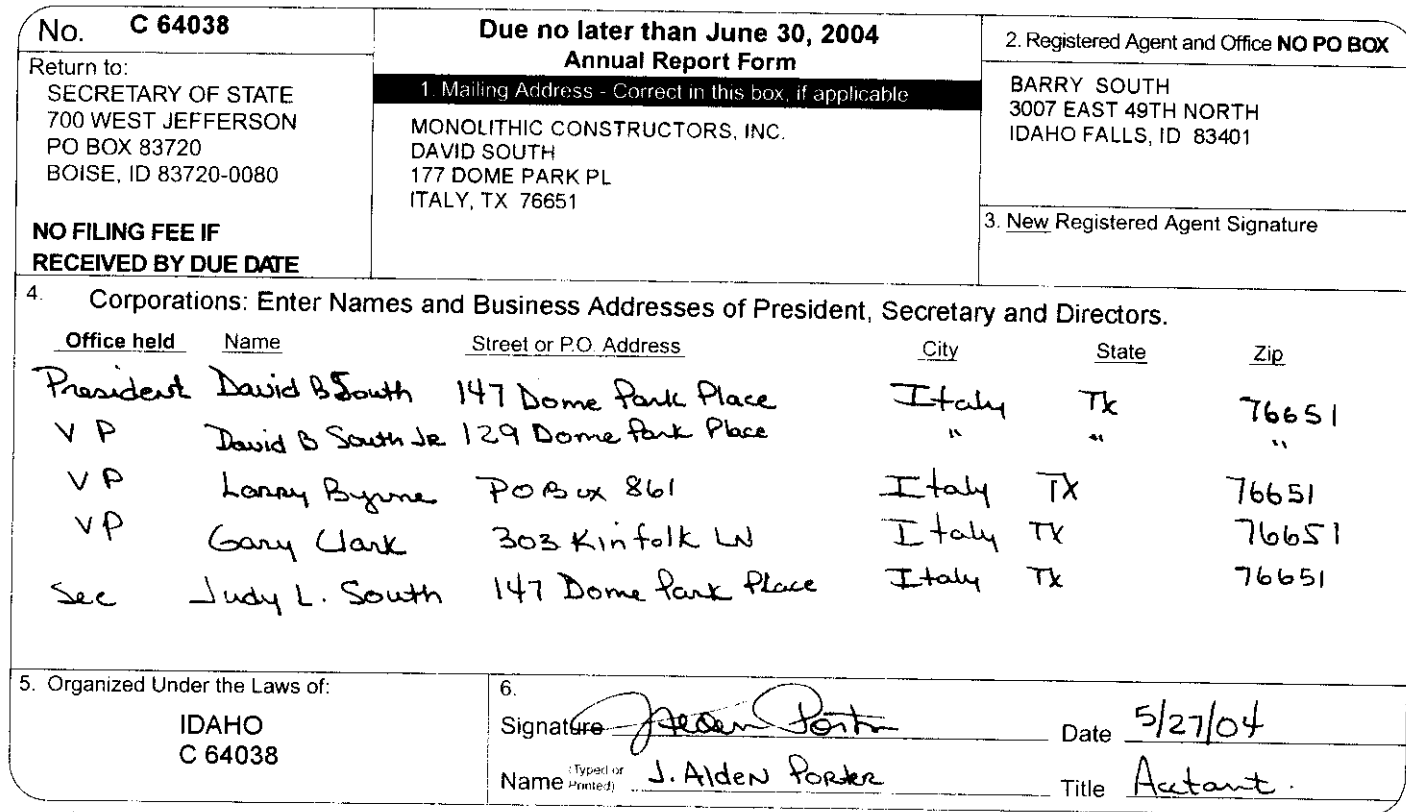 No. C 64038
Return to:
SECRETARY OF STATE
700 WEST JEFFERSON
PO BOX 83720
BOISE, ID 83720-0080
NO FILING FEE IF
RECEIVED BY DUE DATE
Due no later than June 30, 2004
Annual Report Form
1. Mailing Address - Correct in this box, if applicable
MONOLITHIC CONSTRUCTORS, INC.
DAVID SOUTH
177 DOME PARK PL
ITALY, TX 76651
2. Registered Agent and Office NO PO BOX
BARRY SOUTH
3007 EAST 49TH NORTH
IDAHO FALLS, ID 83401
3. New Registered Agent Signature
4. Corporations: Enter Names and Business Addresses of President, Secretary and Directors.
Office held Name Street or P.O. Address City State Zip
President David B South 147 Dome Park Place Italy TX 76651
V P David B South Jr 129 Dome Park Place " " "
V P Larry Byrne PO Box 861 Italy TX 76651
VP Gary Clark 303 Kinfolk LN Italy TX 76651
Sec Judy L. South 147 Dome Park Place Italy TX 76651
5. Organized Under the Laws of:
IDAHO
C 64038
6.
Signature J Alden Porter Date 5/27/04
Name (Typed or Printed) J. Alden Porter Title Acctant.